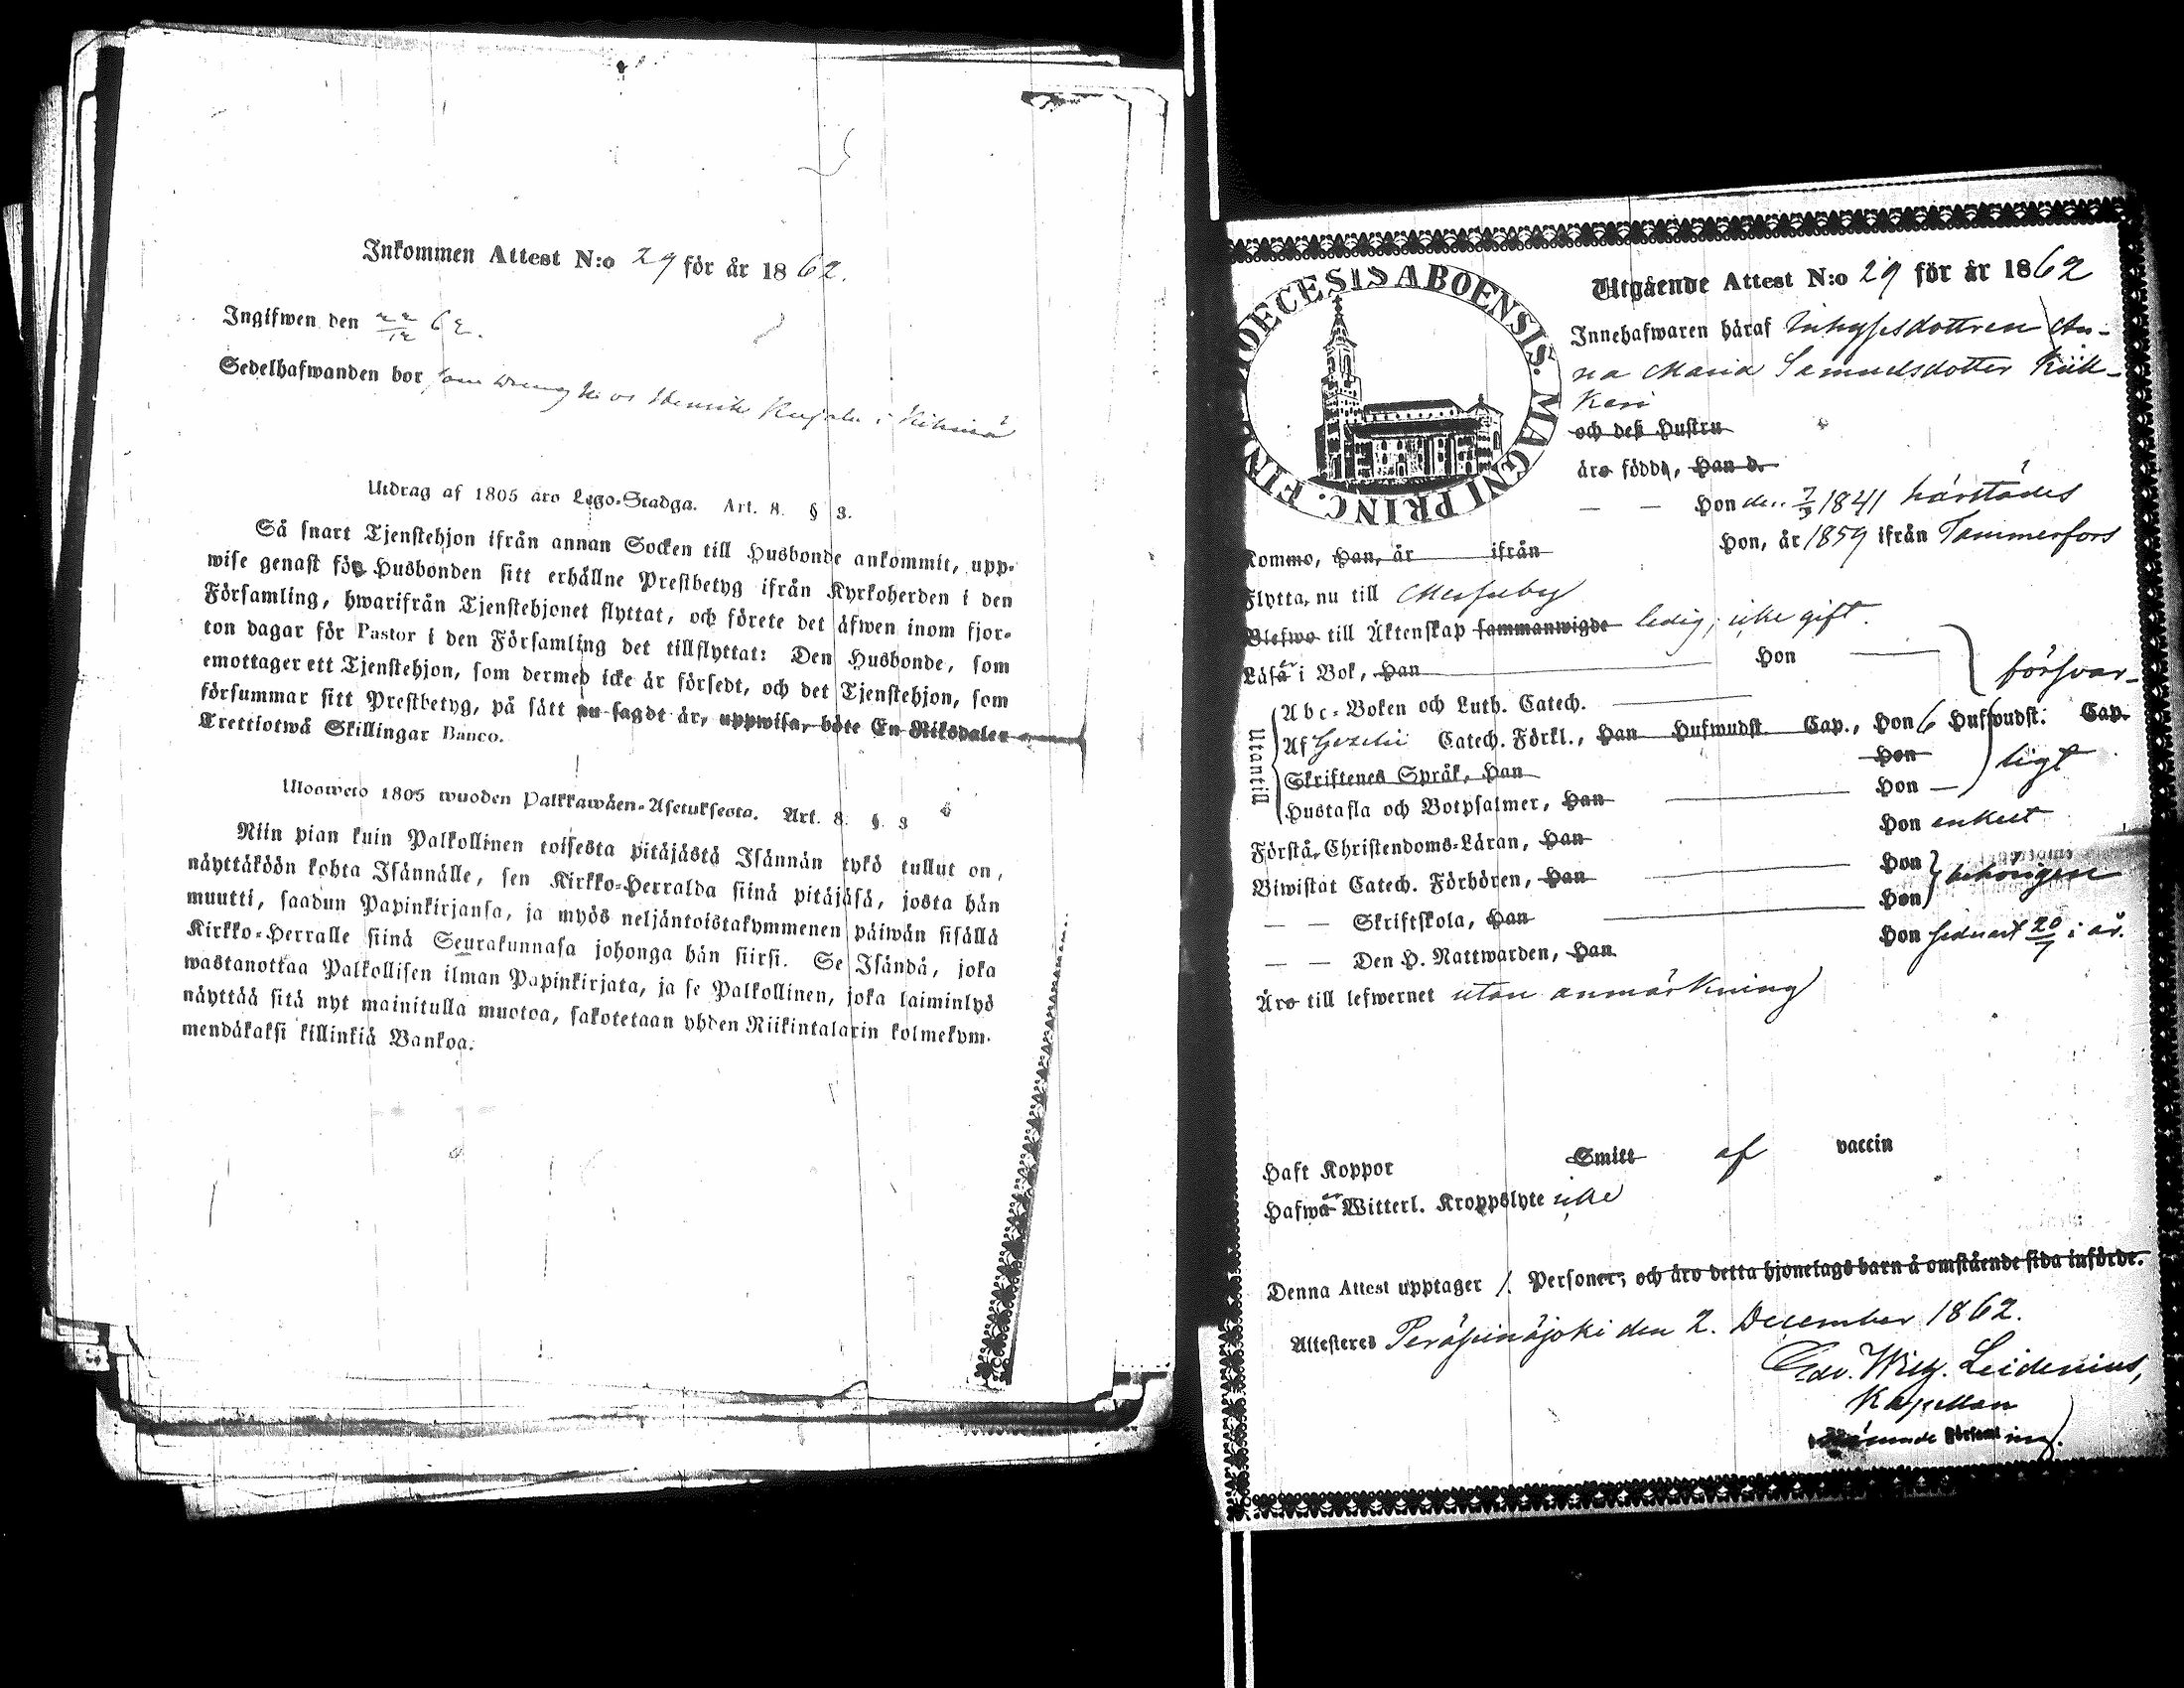 Inkommen Attest N:o 29 för år 1862.
Ingifwen den 22/12 62.
Sedelhafwanden bor som dreng hos Henrik Kujala i Kihniö
Utdrag af 1805 års Lego-Stadga. Art. 8. § 3.
Så snart Tjenstehjon ifrån annan Socken till Husbonde ankommit, upp-
wise genast för Husbonden sitt erhållne Prestbetyg ifrån Kyrkoherden i den
Församling, hwarifrån Tjenstehjonet flyttat, och förete det äfwen inom fjor-
ton dagar för Pastor i den Församling det tillflyttat: Den Husbonde, som
emottager ett Tjenstehjon, som dermed icke är försedt, och det Tjenstehjon, som
försummar sitt Prestbetyg, på sätt nu sagdt är, uppwisa, böte En Riksdaler
Trettiotwå Skillingar Banco.
Ulosweto 1805 wuoden Palkkawäen-Asetuksesta. Art. 8. §. 3
Niin pian kuin Palkollinen toisesta pitäjästä Isännän tykö tullut on,
näyttäköön kohta Isännälle, sen Kirkko-Herralda siinä pitäjäsä, josta hän
muutti, saadun Papinkirjansa, ja myös neljäntoistakymmenen päiwän sisällä
Kirkko-Herralle siinä Seurakunnasa johonga hän siirsi. Se Isändä, joka
wastanottaa Palkollisen ilman Papinkirjata, ja se Palkollinen, joka laiminlyö
näyttää sitä nyt mainitulla muotoa, sakotetaan yhden Riikintalarin kolmekym-
mendäkaksi killinkiä Bankoa.
DIOECESIS ABOENSIS. MAGNI PRINC. FIN
Utgående Attest N:o 29 för år 1862
Innehafwaren häraf Inhysesdottren An-
na Maria Samuelsdotter Kiik-
keri
och deß Hustru
äro födda, Han d.
— — Hon den 7/9 1841 härstädes
Kommo, Han, år ifrån Hon, år 1859 ifrån Tammerfors
Flytta, nu till
Blefwo till Äktenskap sammanwigde ledig, icke gift.
Läsa i Bok, Han Hon
försvar-
Utantill
Abc-Boken och Luth. Catech.
Af Gezelii Catech. Förkl., Han Hufwudst. Cap., Hon 6 Hufwudst. Cap.
Skriftenes Språk, Han Hon
ligt
Hustafla och Botpsalmer, Han Hon
Förstå Christendoms-Läran, Han Hon enkelt
Biwistat Catech. Förhören, Han Hon
behörigen
— — Skriftskola, Han Hon
— — Den H. Nattwarden, Han Hon senast 20/7 i år.
Äro till lefwernet utan anmärkning
Haft Koppor Smitt af vaccin
Hafwa Witterl. Kroppslyte icke
Denna Attest upptager 1. Personer, och äro detta hjonelags barn å omstående sida införde.
Attesteres Peräseinäjoki den 2. December 1862.
Edv. Wilh. Leidenius,
Kapellan